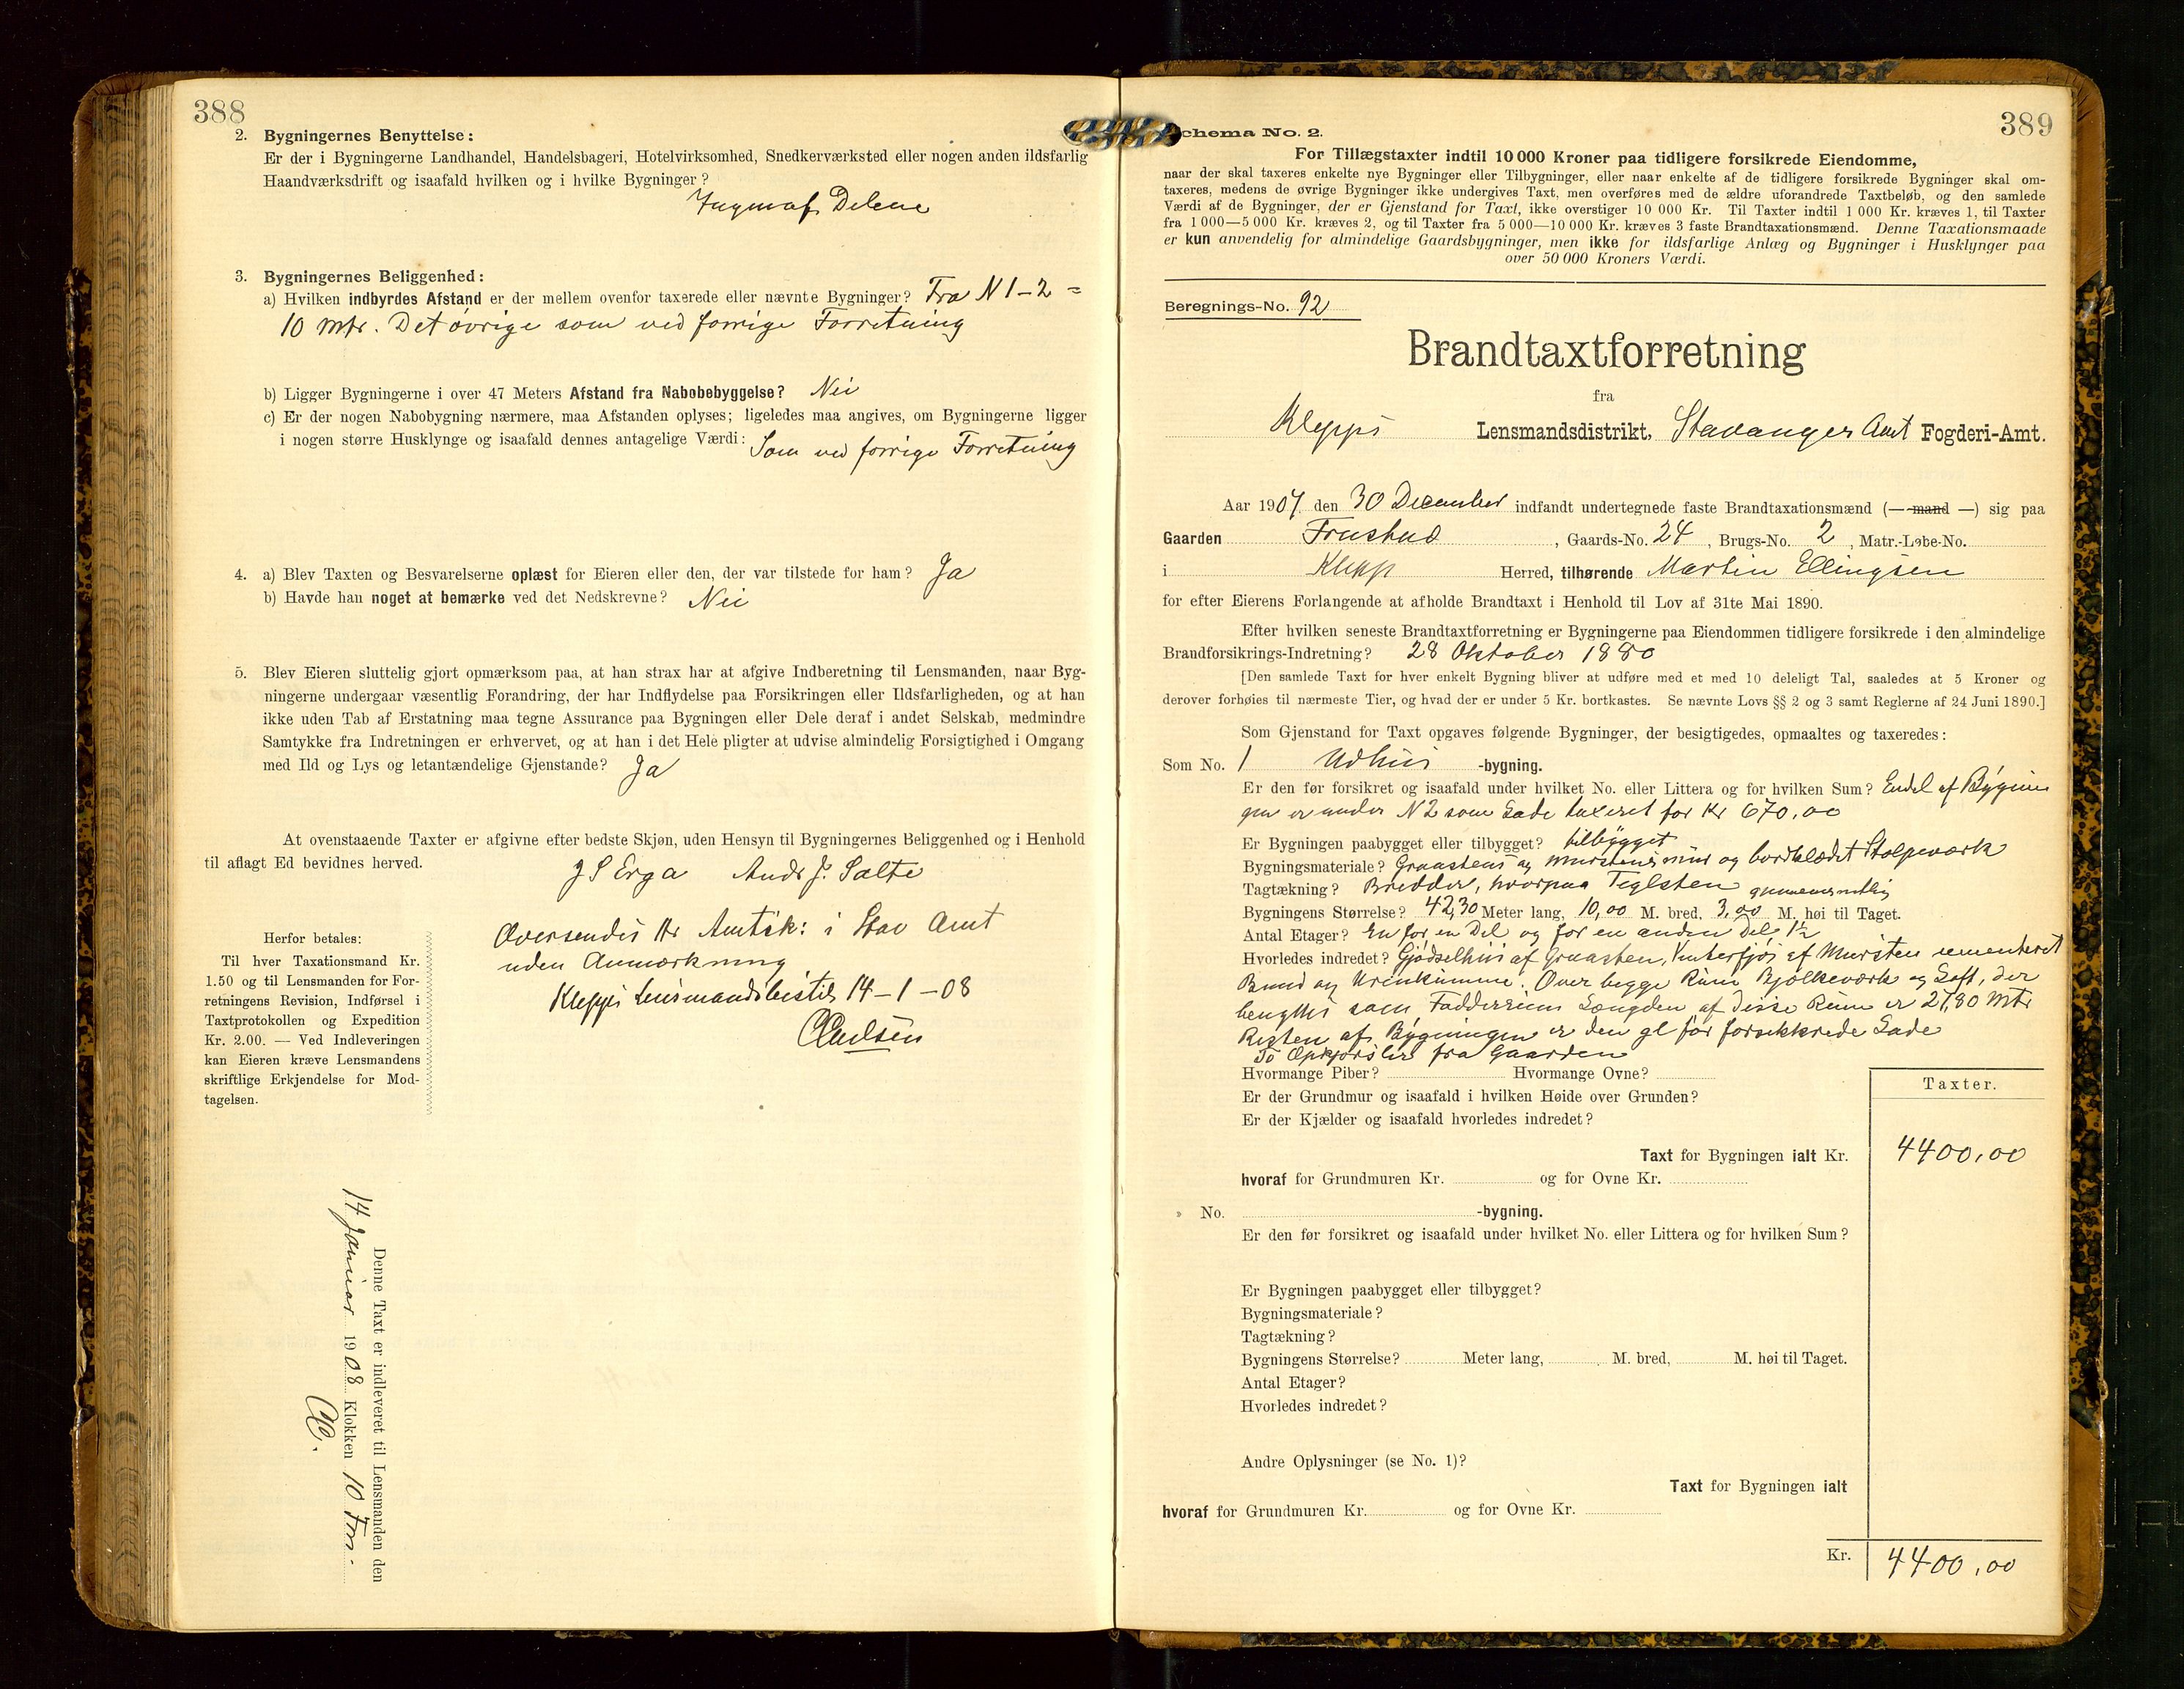 388
2. Bygningernes Benyttelse:
Er der i Bygningerne Landhandel, Handelsbageri, Hotelvirksomhed, Snedkerværksted eller nogen anden ildsfarlig
Haandværksdrift og isaafald hvilken og i hvilke Bygninger?
Ingen af Delene
3. Bygningernes Beliggenhed:
a) Hvilken indbyrdes Afstand er der mellem ovenfor taxerede eller nævnte Bygninger? Fra N 1–2 =
10 Mtr. Det øvrige som ved forrige Forretning
b) Ligger Bygningerne i over 47 Meters Afstand fra Nabobebyggelse? Nei
c) Er der nogen Nabobygning nærmere, maa Afstanden oplyses; ligeledes maa angives, om Bygningerne ligger
i nogen større Husklynge og isaafald dennes antagelige Værdi: Som ved forrige Forretning
4. a) Blev Taxten og Besvarelserne oplæst for Eieren eller den, der var tilstede for ham? Ja
b) Havde han noget at bemærke ved det Nedskrevne? Nei
5. Blev Eieren sluttelig gjort opmærksom paa, at han strax har at afgive Indberetning til Lensmanden, naar Byg-
ningerne undergaar væsentlig Forandring, der har Indflydelse paa Forsikringen eller Ildsfarligheden, og at han
ikke uden Tab af Erstatning maa tegne Assurance paa Bygningen eller Dele deraf i andet Selskab, medmindre
Samtykke fra Indretningen er erhvervet, og at han i det Hele pligter at udvise almindelig Forsigtighed i Omgang
med Ild og Lys og letantændelige Gjenstande? Ja
At ovenstaaende Taxter er afgivne efter bedste Skjøn, uden Hensyn til Bygningernes Beliggenhed og i Henhold
til aflagt Ed bevidnes herved.
J S Erga Andr J. Salte
Oversendes Hr Amtsk: i Stav Amt
uden Anmærkning
Klepps Lensmandsbestil 14–1–08
Herfor betales:
Til hver Taxationsmand Kr.
1.50 og til Lensmanden for For-
retningens Revision, Indførsel i
Taxtprotokollen og Expedition
Kr. 2.00. — Ved Indleveringen
kan Eieren kræve Lensmandens
skriftlige Erkjendelse for Mod-
tagelsen.
Denne Taxt er indleveret til Lensmanden den
14 Januar 1908 Klokken 10 Fm.
389
Schema No. 2.
For Tillægstaxter indtil 10 000 Kroner paa tidligere forsikrede Eiendomme,
naar der skal taxeres enkelte nye Bygninger eller Tilbygninger, eller naar enkelte af de tidligere forsikrede Bygninger skal om-
taxeres, medens de øvrige Bygninger ikke undergives Taxt, men overføres med de ældre uforandrede Taxtbeløb, og den samlede
Værdi af de Bygninger, der er Gjenstand for Taxt, ikke overstiger 10 000 Kr. Til Taxter indtil 1 000 Kr. kræves 1, til Taxter
fra 1 000—5 000 Kr. kræves 2, og til Taxter fra 5 000—10 000 Kr. kræves 3 faste Brandtaxationsmænd. Denne Taxationsmaade
er kun anvendelig for almindelige Gaardsbygninger, men ikke for ildsfarlige Anlæg og Bygninger i Husklynger paa
over 50 000 Kroners Værdi.
Beregnings-No. 92
Brandtaxtforretning
fra
Klepps Lensmandsdistrikt, Stavanger Amt Fogderi-Amt.
Aar 1907 den 30 December indfandt undertegnede faste Brandtaxationsmænd (— mand —) sig paa
Gaarden Frustud, Gaards-No. 24, Brugs-No. 2, Matr.-Løbe-No.
i Klepp Herred, tilhørende Martin Ellingsen
for efter Eierens Forlangende at afholde Brandtaxt i Henhold til Lov af 31te Mai 1890.
Efter hvilken seneste Brandtaxtforretning er Bygningerne paa Eiendommen tidligere forsikrede i den almindelige
Brandforsikrings-Indretning? 28 Oktober 1880
[Den samlede Taxt for hver enkelt Bygning bliver at udføre med et med 10 deleligt Tal, saaledes at 5 Kroner og
derover forhøies til nærmeste Tier, og hvad der er under 5 Kr. bortkastes. Se nævnte Lovs §§ 2 og 3 samt Reglerne af 24 Juni 1890.]
Som Gjenstand for Taxt opgaves følgende Bygninger, der besigtigedes, opmaaltes og taxeredes:
Som No. 1 Udhus -bygning.
Er den før forsikret og isaafald under hvilket No. eller Littera og for hvilken Sum? Endel af Bygnin
gen er under N 2 som Lade taxeret for Kr 670,00
Er Bygningen paabygget eller tilbygget? tilbygget
Bygningsmateriale? Graastens og Murstensmur og bordklædet Stolpeværk
Tagtækning? Bredder, hvorpaa Teglsten gjennemsnitlig
Bygningens Størrelse? 42,30 Meter lang, 10,00 M. bred, 3,00 M. høi til Taget.
Antal Etager? En for en Del og for en anden Del 1½
Hvorledes indredet? Gjødselhus af Graasten, Vinterfjøs af Mursten cementeret
Bund og Urinkumme. Over begge Rum Bjelkeværk og Loft, der
benyttes som Fodderrum Længden af disse Rum er 27,80 Mtr
Resten af Bygningen er den gl før forsikkrede Lade
To Opkjørsler fra Gaarden
Hvormange Piber? Hvormange Ovne?
Er der Grundmur og isaafald i hvilken Høide over Grunden?
Er der Kjælder og isaafald hvorledes indredet?
Taxter.
Taxt for Bygningen ialt Kr. 4400,00
hvoraf for Grundmuren Kr. og for Ovne Kr.
» No. -bygning.
Er den før forsikret og isaafald under hvilket No. eller Littera og for hvilken Sum?
Er Bygningen paabygget eller tilbygget?
Bygningsmateriale?
Tagtækning?
Bygningens Størrelse? Meter lang, M. bred, M. høi til Taget.
Antal Etager?
Hvorledes indredet?
Andre Oplysninger (se No. 1)?
Taxt for Bygningen ialt
hvoraf for Grundmuren Kr. og for Ovne Kr.
Kr. 4400,00